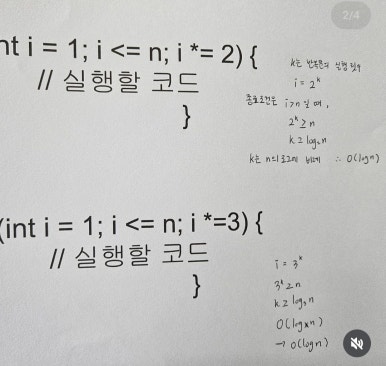 2/4
nt i = 1; i <= n; i *= 2) {
// 실행할 코드
}
k는 반복문의 실행 횟수
i = 2^k
종료조건은 i>n 일 때,
2^k ≥ n
k ≥ log₂n
k는 n의 로그에 비례 ∴ O(logn)
(int i = 1; i <= n; i *=3) {
// 실행할 코드
}
i = 3^k
3^k ≥ n
k ≥ log₃n
→ O(logn)